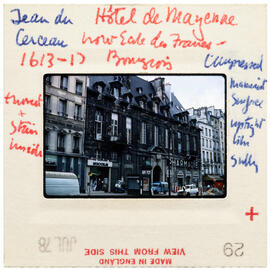 Jean du
Cerceau
1613-17
Hôtel de Mayenne
now Ecole des Francs-
Bourgeois
Compressed
movement
Surface
upright
like
Sully
turret
+
Stair
inside
MADE IN ENGLAND
VIEW FROM THIS SIDE
JUL 78
29
+